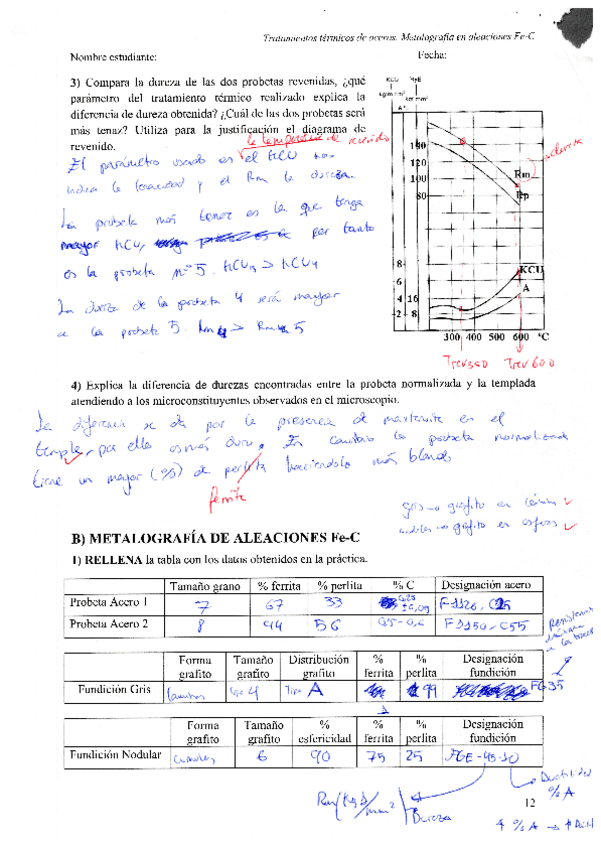 Tratamientos térmicos de aceros. Metalografía en aleaciones Fe-C
Nombre estudiante: Fecha:
3) Compara la dureza de las dos probetas revenidas, ¿qué
parámetro del tratamiento térmico realizado explica la
diferencia de dureza obtenida? ¿Cuál de las dos probetas será
más tenaz? Utiliza para la justificación el diagrama de
revenido.
la temperatura de revenido
El parámetro usado es el KCU nos
indica la tenacidad y el Rm la dureza.
La probeta más tenaz es la que tenga
mayor KCU, por tanto
es la probeta nº 5. KCU5 > KCU4
La dureza de la probeta 4 será mayor
a la probeta 5. Rm4 > Rm 5
KCU
A%
140
120
100
80
Rm
Rp
8
6
4 16
2 8
KCU
A
300 400 500 600 °C
Trev 600
4) Explica la diferencia de durezas encontradas entre la probeta normalizada y la templada
atendiendo a los microconstituyentes observados en el microscopio.
La diferencia se da por la presencia de martensita en el
temple, por ello es más dura. En cambio la probeta normalizada
tiene un mayor (%) de perlita haciéndolo más blando
ferrita
gris → grafito en
nodular → grafito en esferas
B) METALOGRAFÍA DE ALEACIONES Fe-C
1) RELLENA la tabla con los datos obtenidos en la práctica.
Tamaño grano % ferrita % perlita % C Designación acero
Probeta Acero 1 7 67 33 F1120, C25
Probeta Acero 2 8 44 56 F1150, C55
Forma grafito Tamaño grafito Distribución grafito % ferrita % perlita Designación fundición
Fundición Gris 4 Tipo A 1 99 FG35
Forma grafito Tamaño grafito % esfericidad % ferrita % perlita Designación fundición
Fundición Nodular 6 90 75 25 FGE-45-10
Ductilidad
% A
Rm (Kg/mm²)
Dureza
12
↑ % A → ↑ Duct